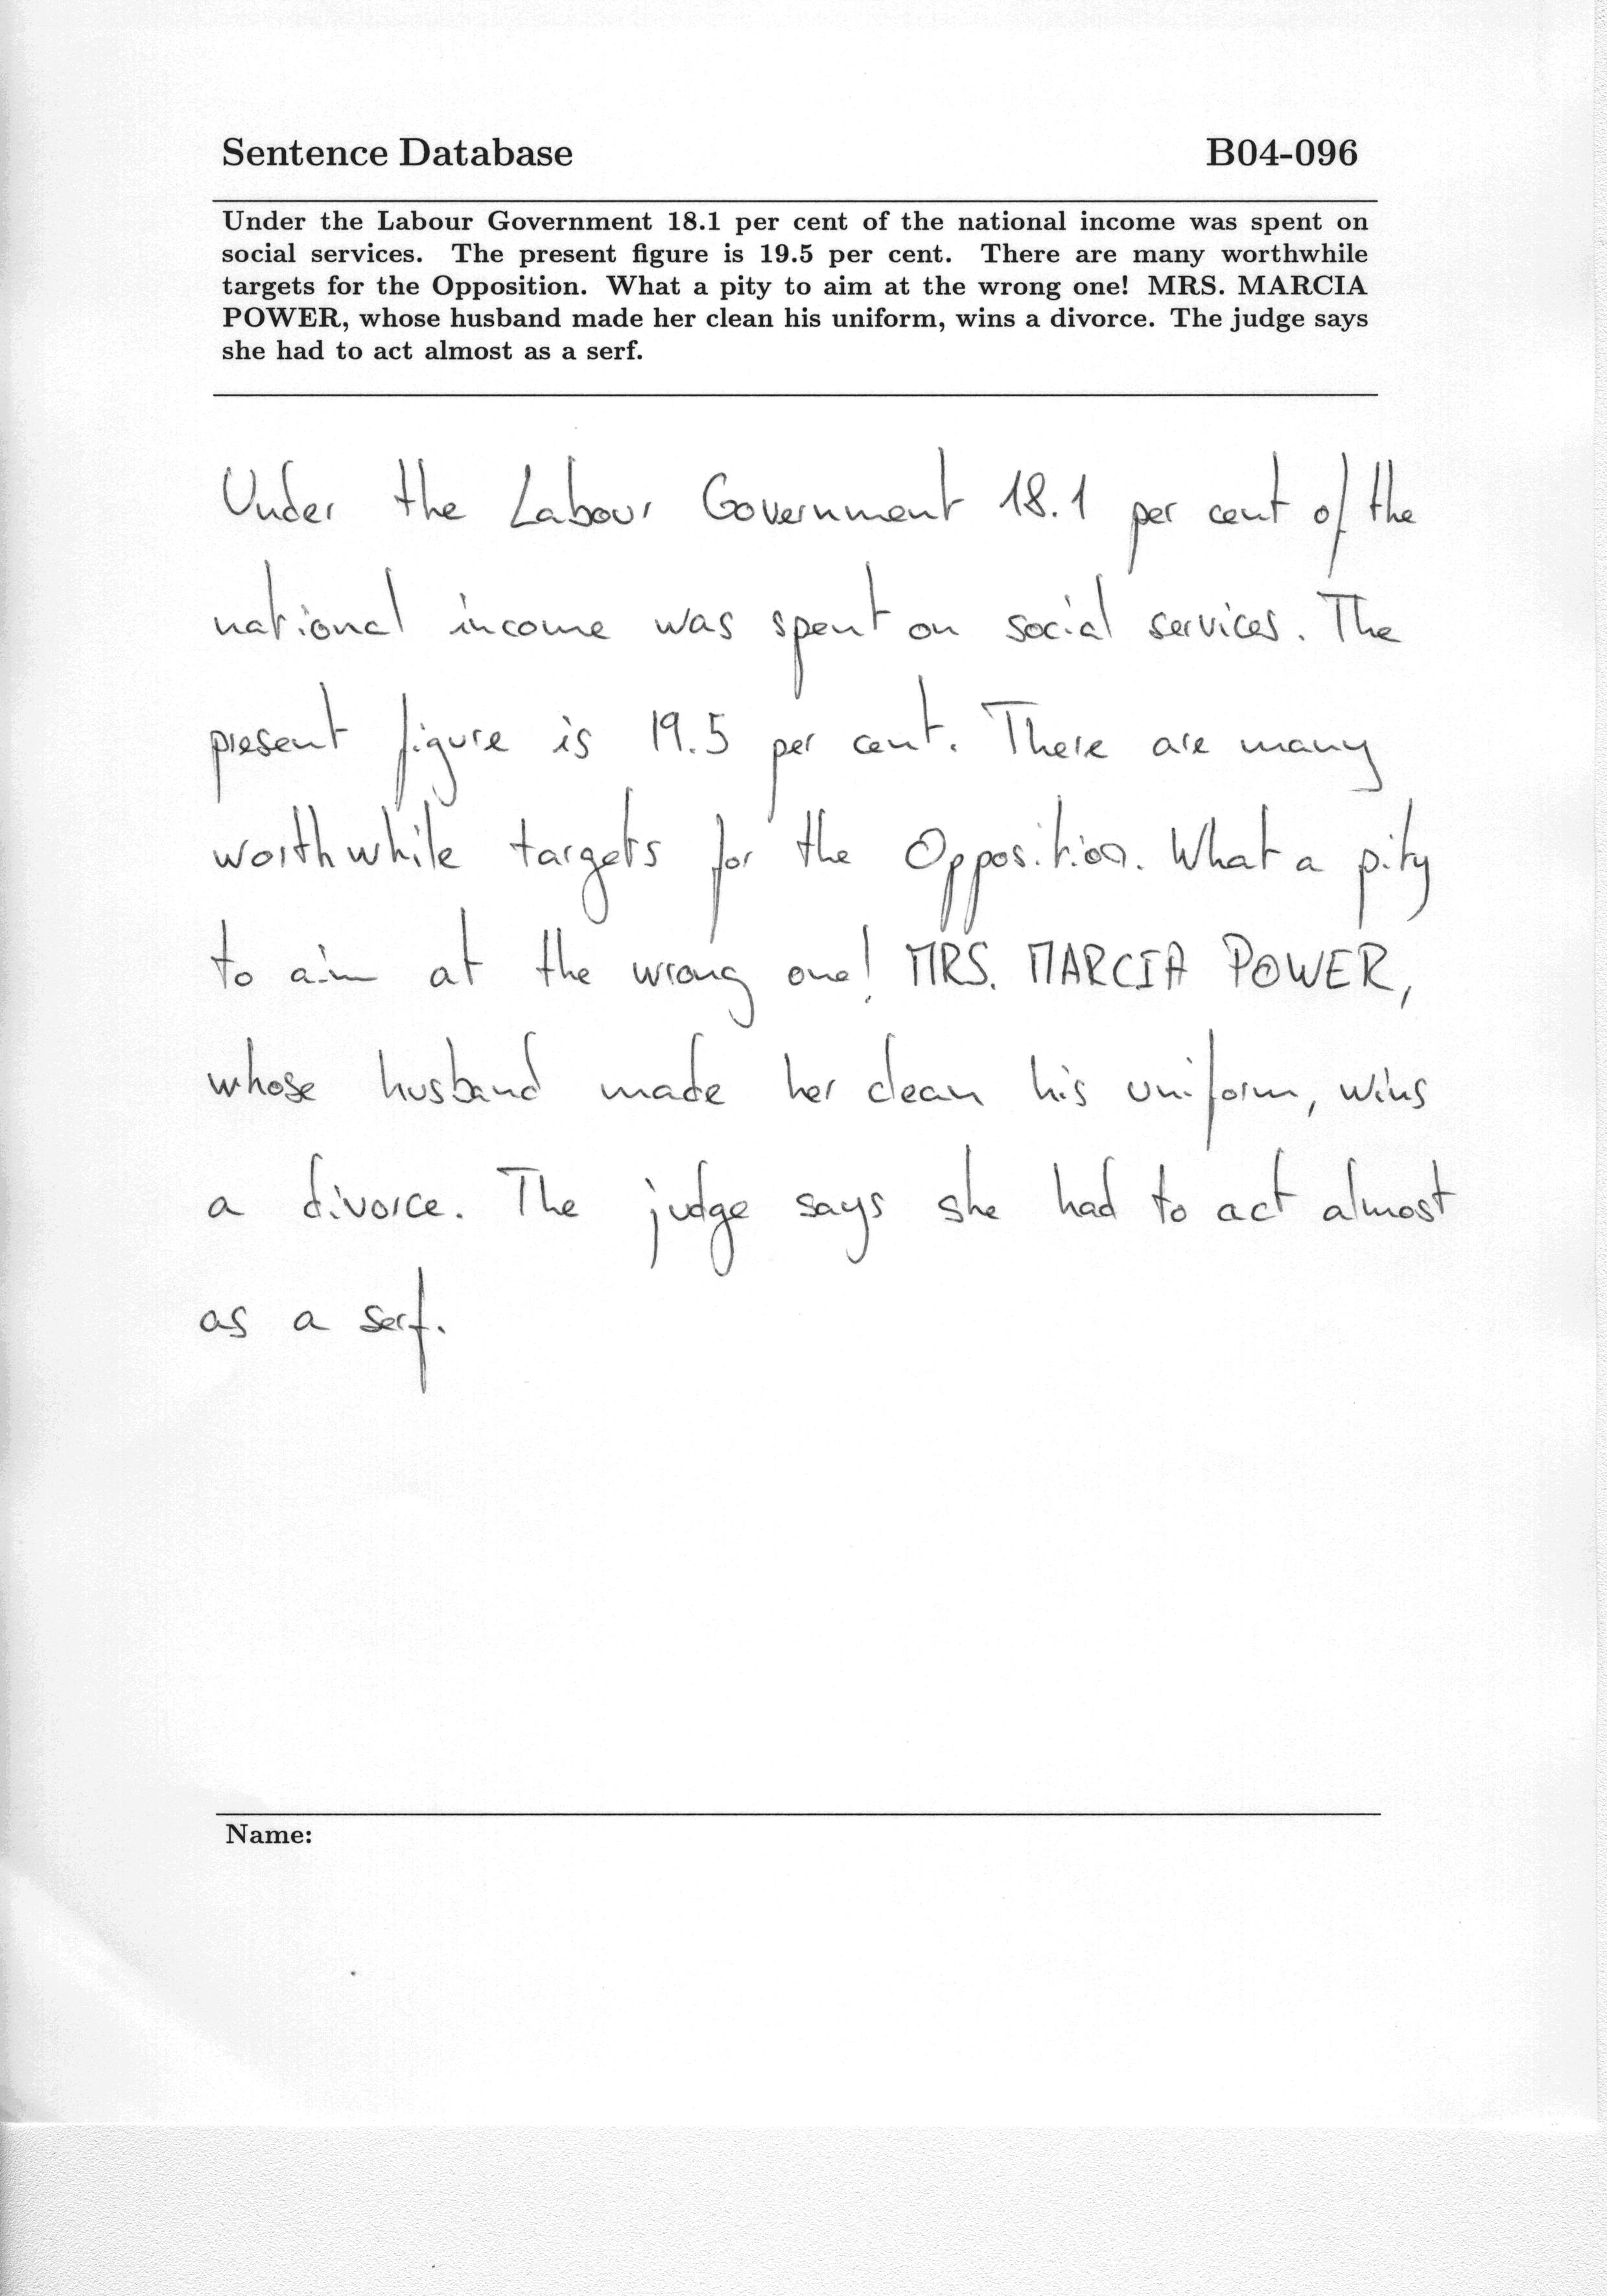 Sentence Database B04-096
Under the Labour Government 18.1 per cent of the national income was spent on
social services. The present figure is 19.5 per cent. There are many worthwhile
targets for the Opposition. What a pity to aim at the wrong one! MRS. MARCIA
POWER, whose husband made her clean his uniform, wins a divorce. The judge says
she had to act almost as a serf.
Under the Labour Government 18.1 per cent of the
national income was spent on social services. The
present figure is 19.5 per cent. There are many
worthwhile targets for the Opposition. What a pity
to aim at the wrong one! MRS. MARCIA POWER,
whose husband made her clean his uniform, wins
a divorce. The judge says she had to act almost
as a serf.
Name: